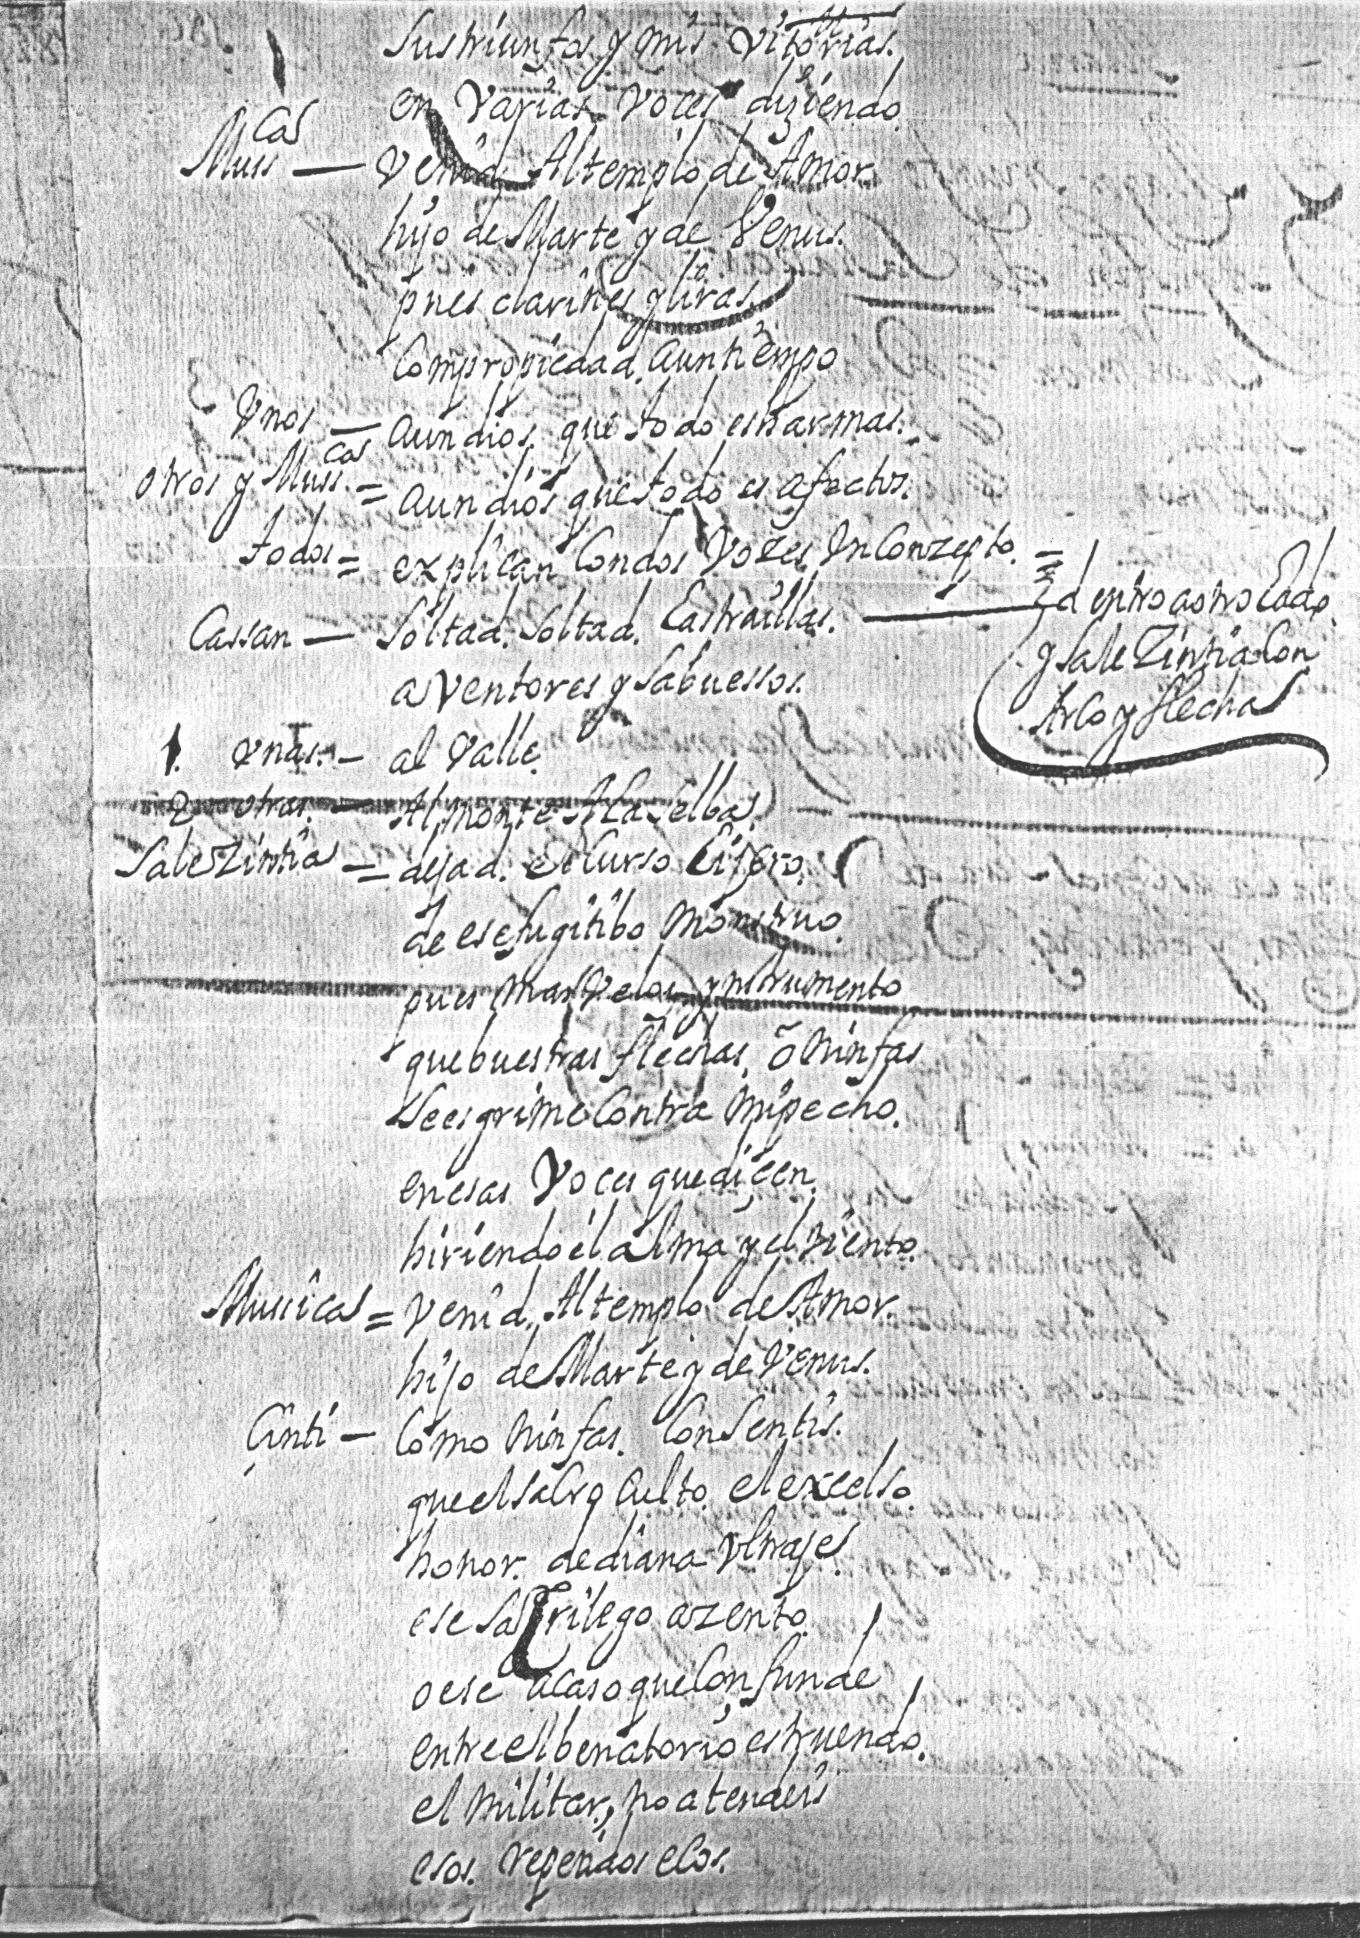 sus triunfos y mis Vitorias.
en Varias Voces diziendo.
Musscas — Venid Al templo de Amor
hijo de Marte y de Venus.
pues clarines y liras.
Con propiedad. a un tiempo
Unos — a un dios. que todo es harmas.
otros y Musscas = a un dios que todo es afectos.
todos = explican Con dos Vozes Un Conzepto. =
Cassan — Soltad. Soltad. Las traillas. — dentro a otro lado.
y Sale Zintia Con
Arco y flecha
a Ventores y Sabuessos.
1. Unas. — al Valle.
2 otras. — Al monte A la selba.
Sale Zintia = dejad. el Curso lijero.
de ese fugitibo Monstruo.
pues mas Veloz ynstrumento
que buestras flechas, õ Ninfas
se esgrime Contra Mi pecho.
en esas Voces que diçen
hiriendo el alma y el viento.
Mussica = Venid. Al templo de Amor.
hijo de Marte y de Venus.
Çinti — Como Ninfas. Consentis.
que el sacro Culto. el excelso.
honor. de diana Ultraje
ese Sacrilego azento.
o ese acaso que Confunde
entre el benatorio estruendo.
el Militar, no atendeis
esos. repetidos ecos.